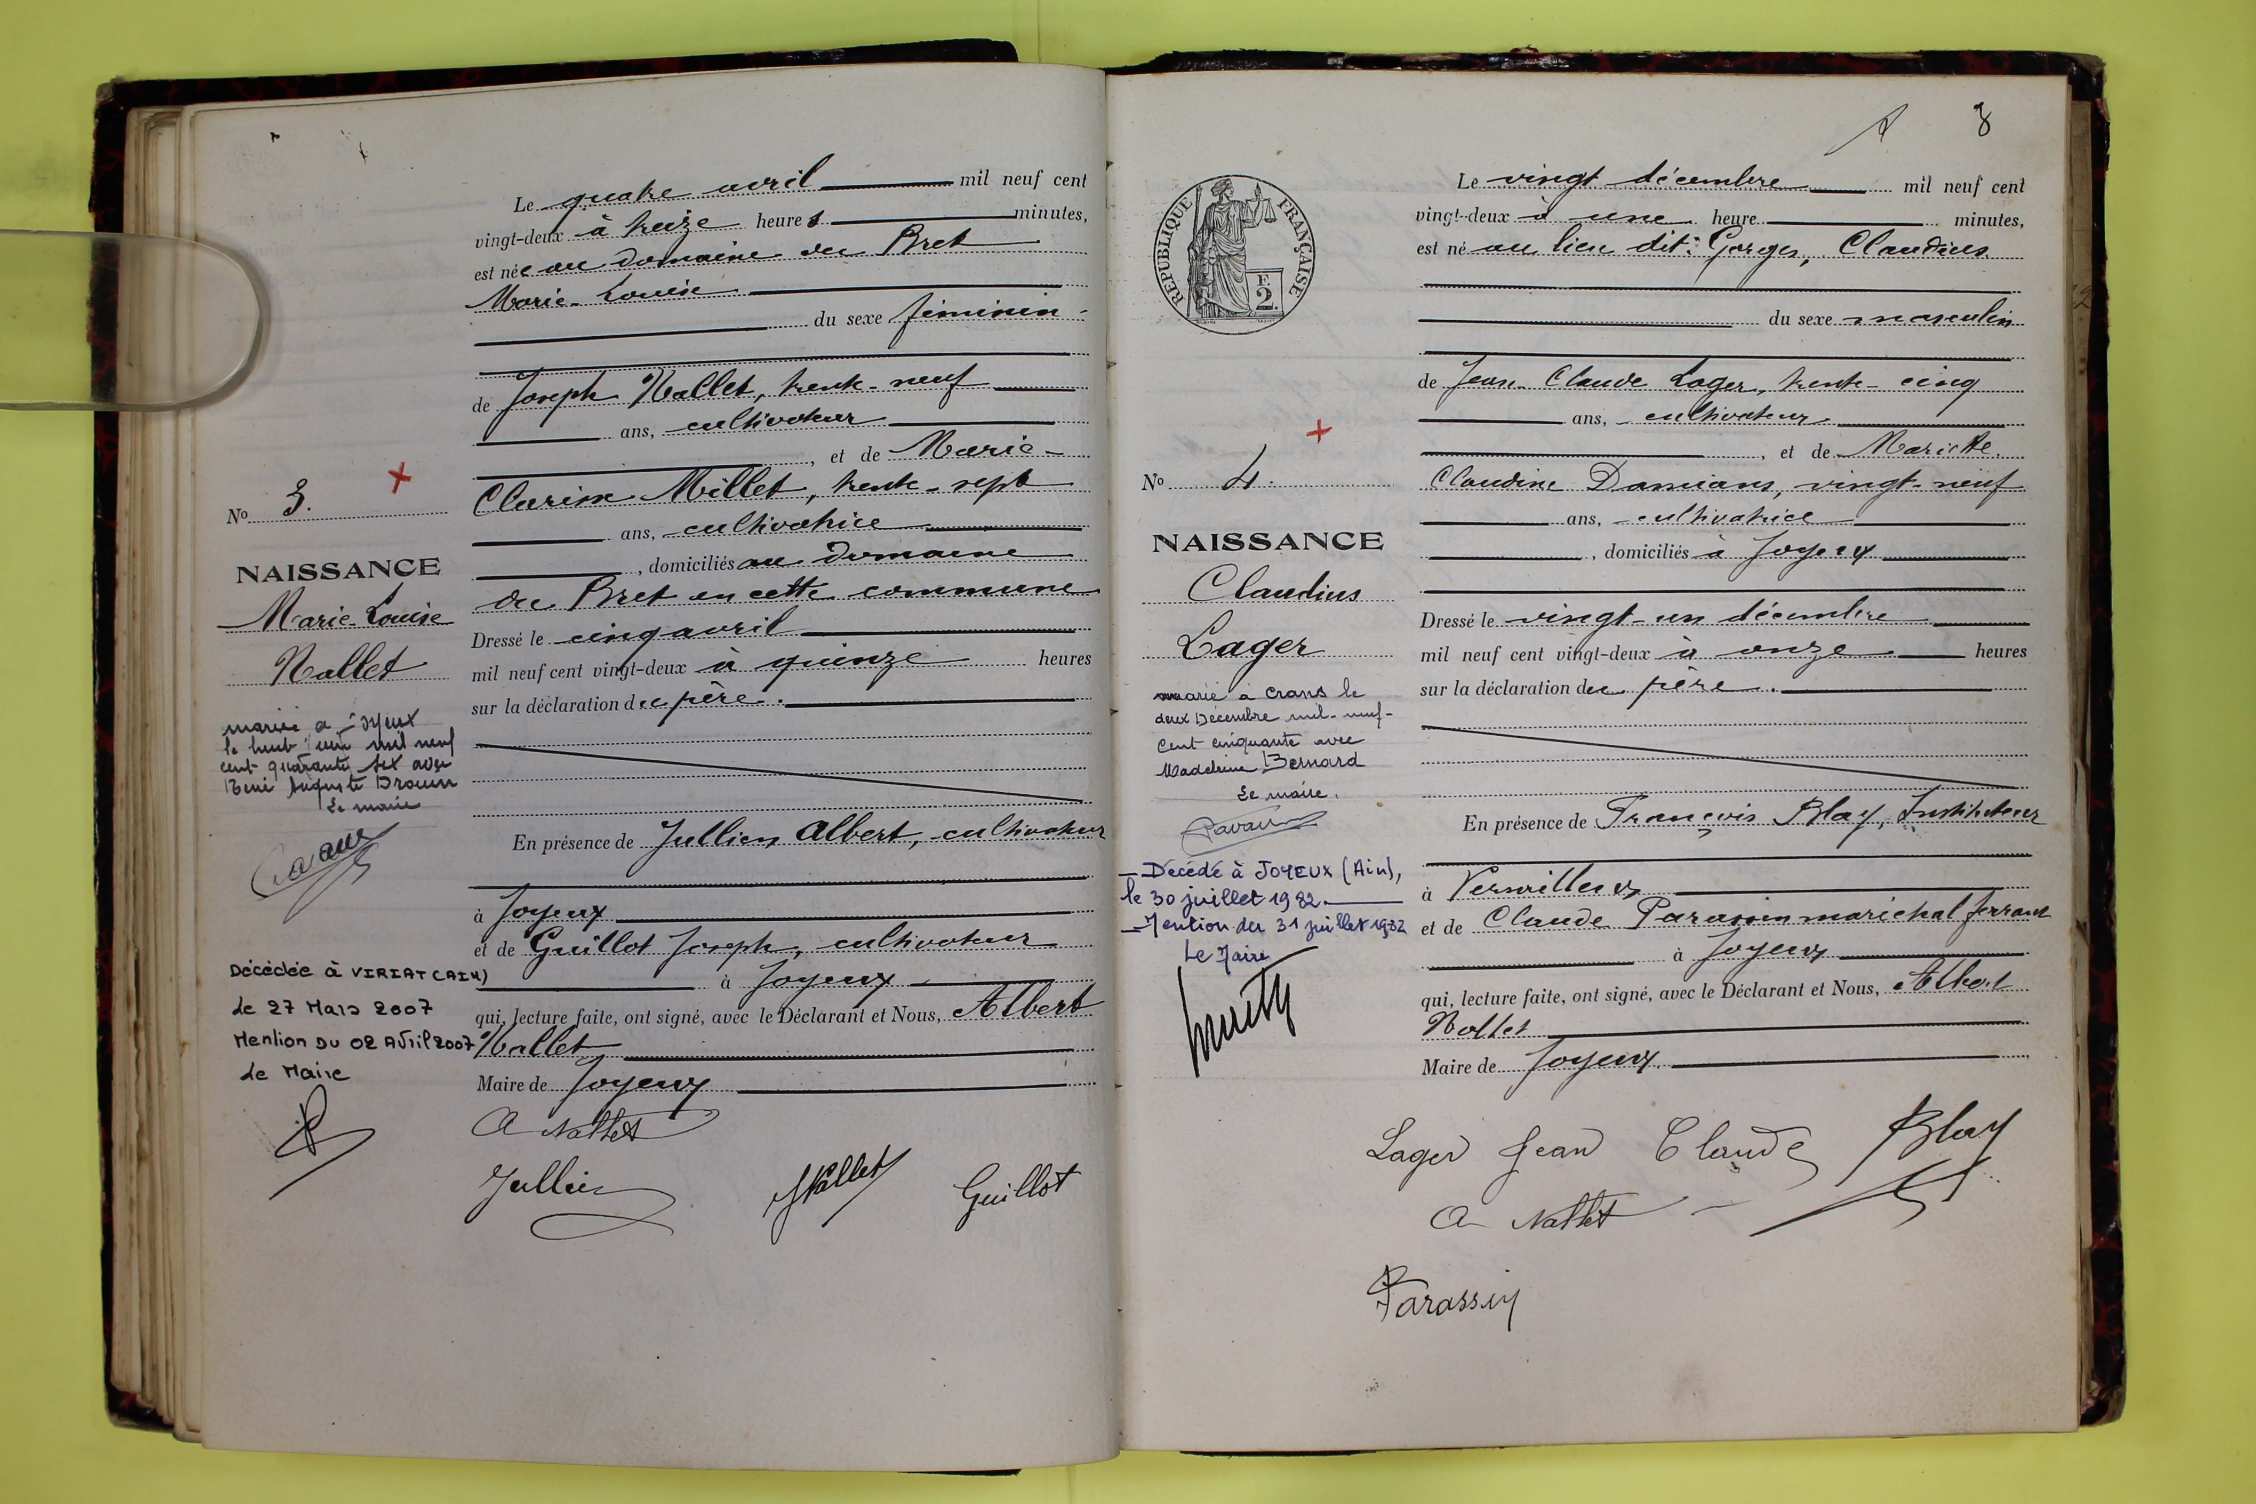 Le quatre avril mil neuf cent
vingt-deux à treize heures minutes,
est née au domaine du Bret
Marie-Louise
du sexe féminin
de Joseph Nallet, trente-neuf
ans, cultivateur
, et de Marie-
Clarisse Millet, trente-sept
ans, cultivatrice
, domiciliés au domaine
du Bret en cette commune
Dressé le cinq avril
mil neuf cent vingt-deux à quinze heures
sur la déclaration du père.
En présence de Jullien Albert, cultivateur
à Joyeux
et de Guillot Joseph, cultivateur
à Joyeux
qui, lecture faite, ont signé, avec le Déclarant et Nous, Albert
Nallet
Maire de Joyeux
A Nallet
Jullien
JNallet
Guillot
No 3.
NAISSANCE
Marie-Louise
Nallet
mariée a Joyeux
le huit juin mil neuf
cent quarante six avec
René Auguste
Le maire
Décédée à VIRIAT (AIN)
Le 27 Mars 2007
Mention DU 02 AVril 2007
Le Maire
8
RÉPUBLIQUE FRANÇAISE
F.
2
Le vingt décembre mil neuf cent
vingt-deux à une heure minutes,
est né au lieu dit: Gorges, Claudius
du sexe masculin
de Jean Claude Lager, trente-cinq
ans, cultivateur
, et de Mariette
Claudine Damians, vingt-neuf
ans, cultivatrice
, domiciliés à Joyeux
Dressé le vingt-un décembre
mil neuf cent vingt-deux à onze heures
sur la déclaration du père.
En présence de François Blay, Instituteur
à Versailleux
et de Claude Parassin maréchal ferrant
à Joyeux
qui, lecture faite, ont signé, avec le Déclarant et Nous, Albert
Nallet
Maire de Joyeux.
Lager Jean Claude
Blay
A Nallet
Parassin
No 4.
NAISSANCE
Claudius
Lager
marié a Crans le
deux Décembre mil-neuf-
cent cinquante avec
Madeleine Bernard
Le maire.
- Décédé à JOYEUX (Ain),
le 30 juillet 1982.
- Mention du 31 juillet 1982
Le Maire